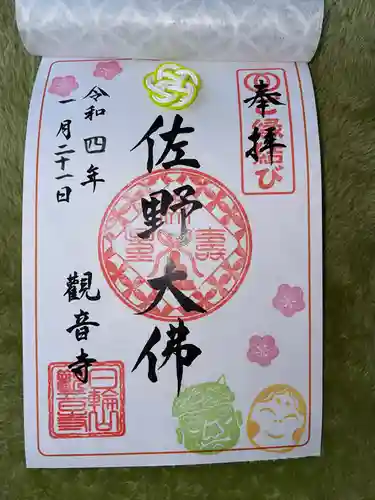 奉拝
縁結び
佐野大佛
令和四年
一月二十一日
觀音寺
日輪山
觀音寺